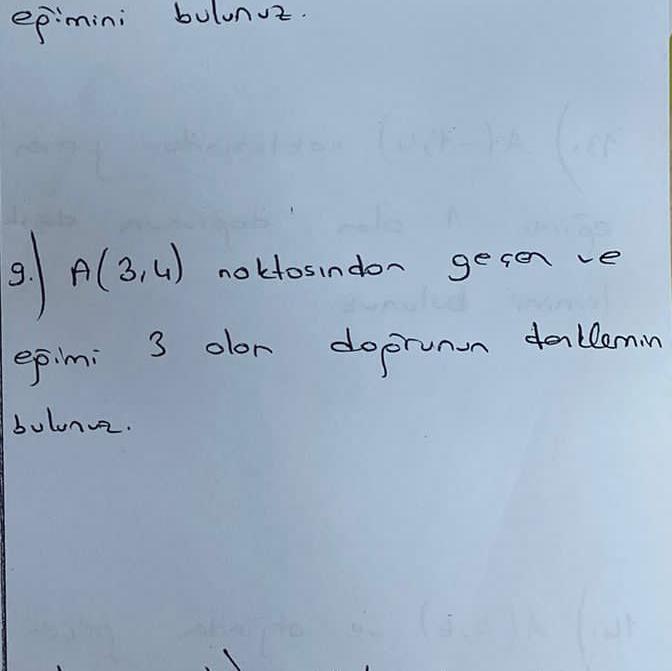 eğimini bulunuz.
9.) A(3,4) noktasından geçen ve
eğimi 3 olan doğrunun denklemin
bulunuz.